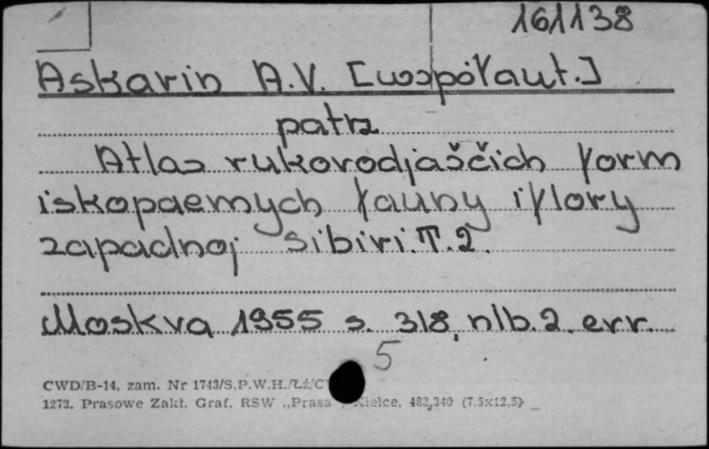 161138
Askarin A.V. [współaut.]
patrz
Atlas rukovodjaščich form
iskopaemych fauny i flory
zapadnoj Sibiri. T. 2.
Moskva 1955 s. 318, nlb. 2. err.
5
CWD/B-14, zam. Nr 1743/S.P.W.H./Łź/C
1272. Prasowe Zakł. Graf. RSW „Prasa", Kielce, 482,340 (7,5x12,5)